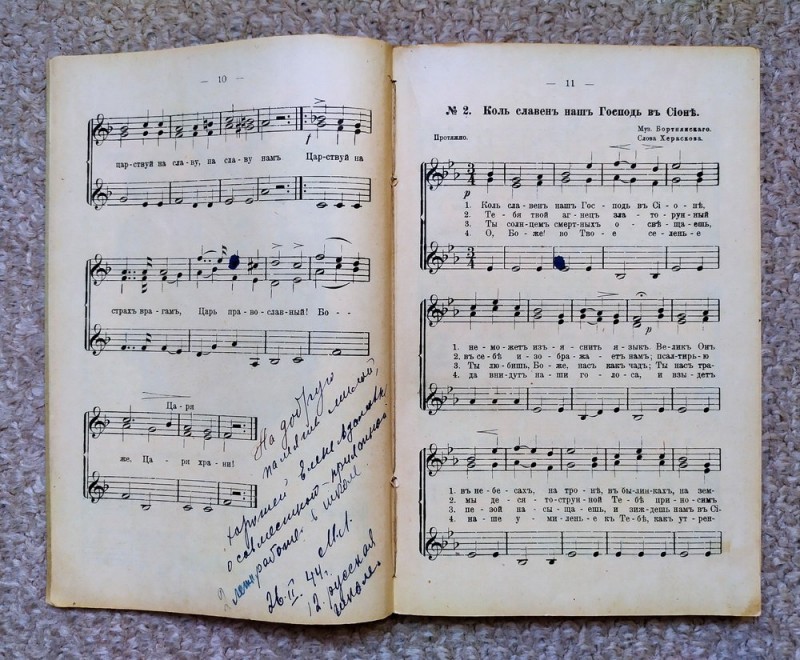 — 10 —
цар-ствуй на сла-ву, на сла-ву намъ Цар-ствуй на
страхъ вра-гамъ, Царь пра-во-слав-ный! Бо - -
Ца-ря
же, Ца - ря хра - ни!
На добрую
память милой,
хорошей Елене
о совместной
работе в школе.
26.II.44. М.Л.
12 русская
школа.
— 11 —
№ 2. Коль славенъ нашъ Господь въ Сіонѣ.
Протяжно.
Муз. Бортнянскаго.
Слова Хераскова.
p
1. Коль сла-венъ нашъ Гос - подь въ Сі - о - нѣ,
2. Те - бя твой аг-нецъ зла - то-рун-ный
3. Ты солн-цемъ смерт-ныхъ о - свѣ - ща-ешь,
4. О, Бо - же! во Тво - е се - лень-е
p
1. не-мо-жетъ изъ-я - снить я - зыкъ Ве-ликъ Онъ
2. въ се-бѣ и - зо-бра-жа - етъ намъ; псал-тирь-ю
3. Ты лю-бишь, Бо-же, насъ какъ чадъ; Ты насъ тра-
4. да вни-дутъ на-ши го-ло-са, и взы-детъ
1. въ не-бе - сахъ, на тро - нѣ, въ бы-лин-кахъ, на зем-
2. мы де - ся - то-струн-ной Те-бѣ при-но-симъ
3. пе-зой на-сы-ща-ешь, и зиж-дешь намъ въ Сі-
4. на-ше у - ми-лень-е къ Те-бѣ, какъ ут - рен-